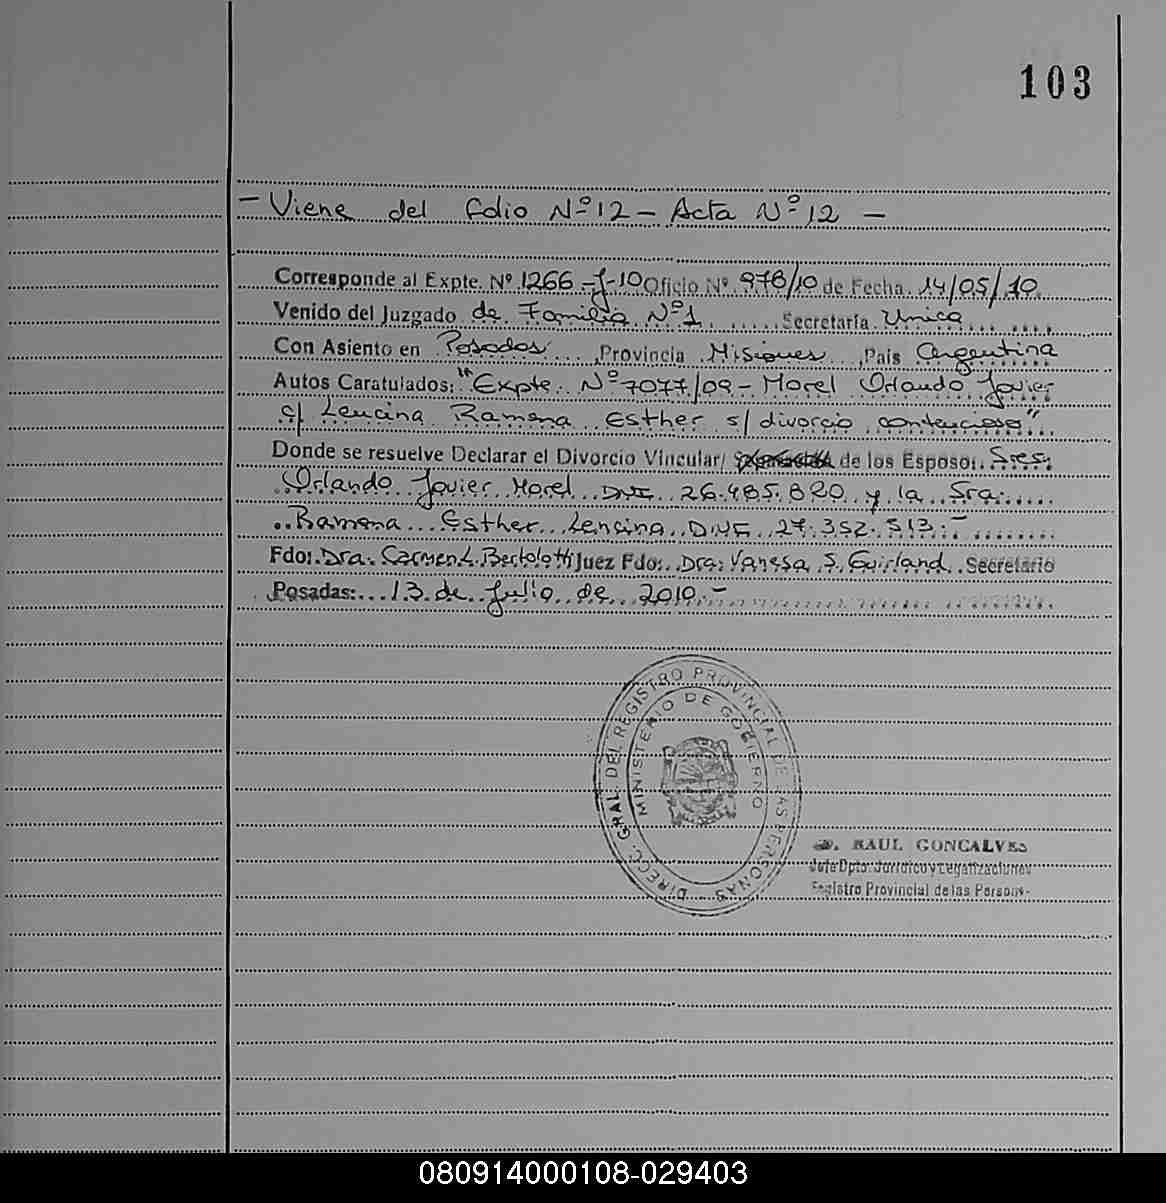 103
- Viene del folio Nº 12 - Acta Nº 12 -
Corresponde al Expte. Nº 1266-J-10 Oficio Nº 978/10 de Fecha 14/05/10
Venido del Juzgado de Familia Nº 1 Secretaría Unica
Con Asiento en Posadas Provincia Misiones País Argentina
Autos Caratulados: "Expte. Nº 7077/09 - Morel Orlando Javier
c/ Lencina Ramona Esther s/ divorcio contencioso"
Donde se resuelve Declarar el Divorcio Vincular/ de los Esposos: Sres.
Orlando Javier Morel DNI 26.485.820 y la Sra.
Ramona Esther Lencina DNI 27.352.513.-
Fdo: Dra. Carmen L. Bertolotti Juez Fdo: Dra. Vanessa S. Guirland Secretario
Posadas: 13 de Julio de 2010.-
DIRECC. GRAL. DEL REGISTRO PROVINCIAL DE LAS PERSONAS
MINISTERIO DE GOBIERNO
RAUL GONCALVES
Jefe Dpto. Jurídico y Legalizaciones
Registro Provincial de las Person.
080914000108-029403